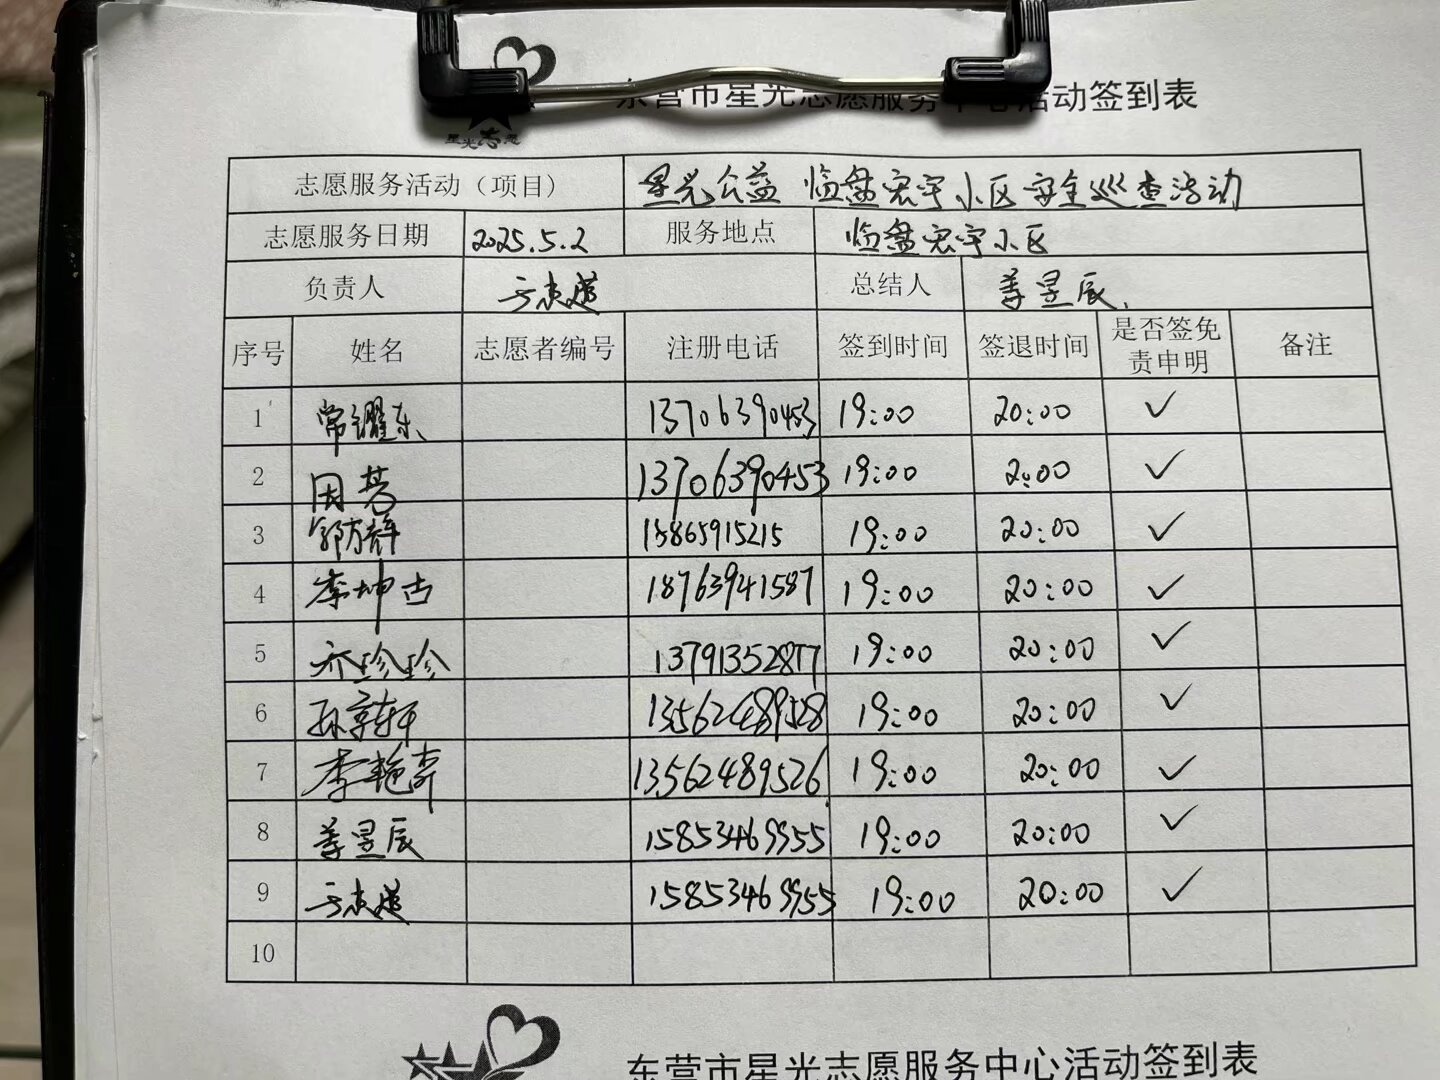 星光志愿
东营市星光志愿服务中心活动签到表
志愿服务活动（项目） 星光公益 临盘宏宇小区安全巡查活动
志愿服务日期 2025.5.2 服务地点 临盘宏宇小区
负责人 总结人 昱辰
序号 姓名 志愿者编号 注册电话 签到时间 签退时间 是否签免责申明 备注
1 常耀东 13706390453 19:00 20:00 ✓
2 13706390453 19:00 20:00 ✓
3 郭方辉 15865915215 19:00 20:00 ✓
4 李坤古 18763941587 19:00 20:00 ✓
5 乔珍珍 13791352877 19:00 20:00 ✓
6 孙京轩 13562489528 19:00 20:00 ✓
7 李艳 13562489526 19:00 20:00 ✓
8 昱辰 15853469955 19:00 20:00 ✓
9 15853469955 19:00 20:00 ✓
10
东营市星光志愿服务中心活动签到表